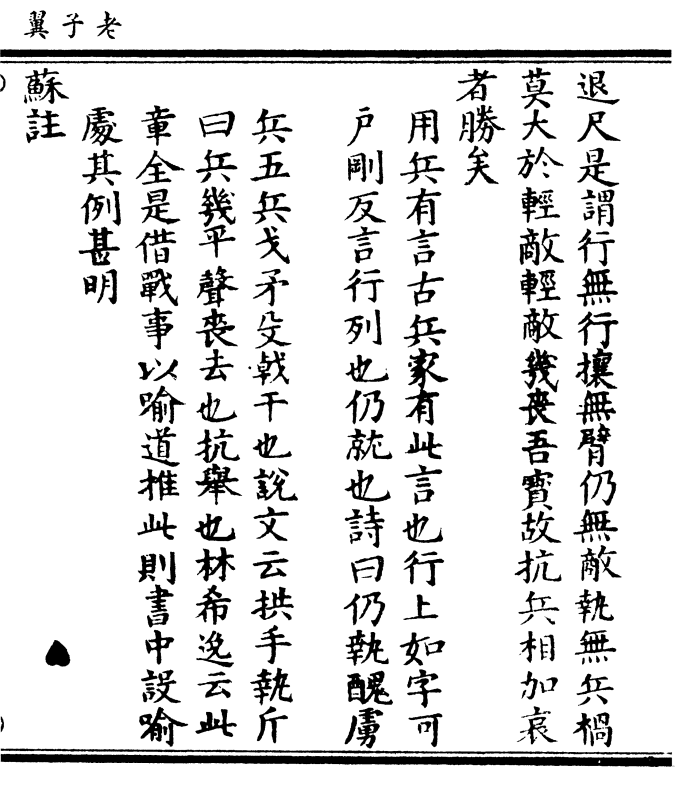 老子翼
退尺是謂行無行攘無臂仍無敵執無兵禍
莫大於輕敵輕敵幾喪吾寳故抗兵相加哀
者勝矣
用兵有言古兵家有此言也行上如字可
戶剛反言行列也仍就也詩曰仍執醜虜
兵五兵戈矛殳戟干也說文云拱手執斤
曰兵幾平聲喪去也抗舉也林希逸云此
章全是借戰事以喻道推此則書中設喻
處其例甚明
蘇註